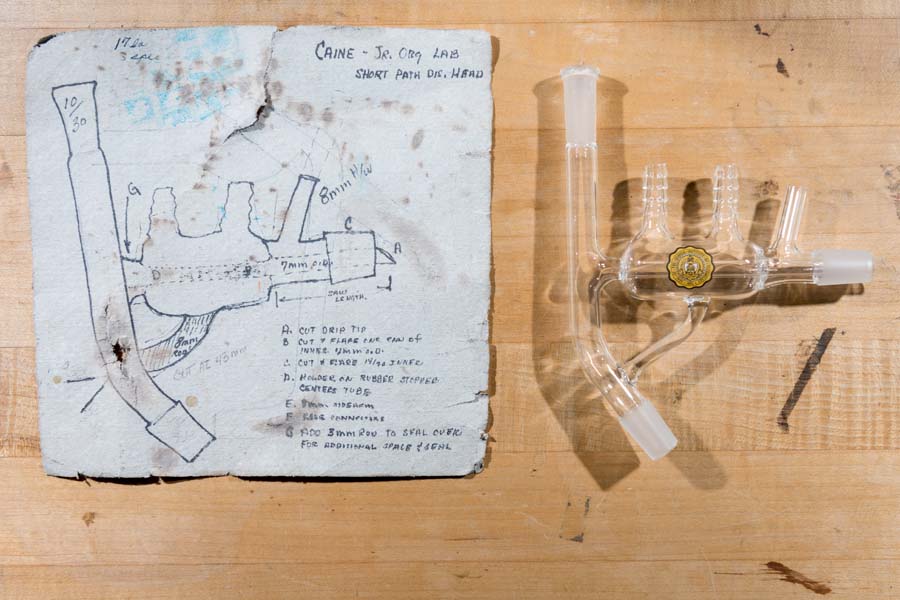 CAINE - JR. ORG LAB
SHORT PATH DIS. HEAD
10/
30
G
8mm H/W
C
A
D
B
7mm O.D.
LENGTH.
8mm
ROD
CUT AT 45mm
A. CUT DRIP TIP
B CUT & FLARE ONE END OF
INNER 7mm O.D.
C. CUT & FLARE 14/20 INNER
D. HOLDER ON RUBBER STOPPER
CENTERS TUBE
E. 8mm SIDEARM
F. HOSE CONNECTORS
G ADD 3mm ROD TO SEAL OVER
FOR ADDITIONAL SPACE & SEAL